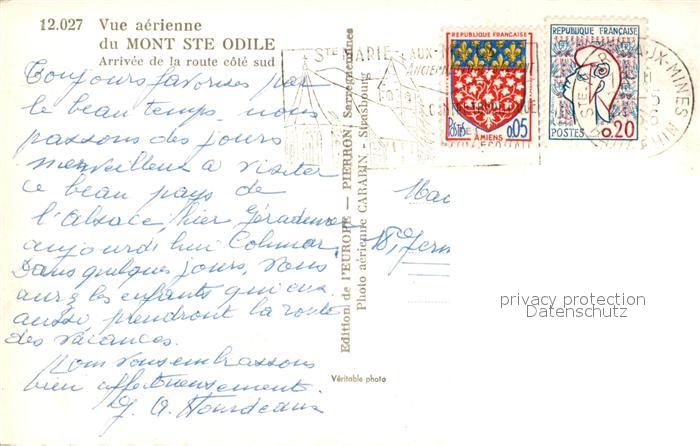 12.027 Vue aérienne
du MONT STE ODILE
Arrivée de la route côté sud
Toujours favorisés par
le beau temps, nous
passons des jours
merveilleux à visiter
ce beau pays de
l'Alsace, hier Gérardmer
aujourd'hui Colmar.
Dans quelques jours, vous
aurez les enfants qui eux
aussi, prendront la route
des vacances.
Nous vous embrassons
bien affectueusement.
Edition de l'EUROPE - PIERRON, Sarreguemines
Photo aérienne CARABIN - Strasbourg
Véritable photo
STE MARIE-AUX-MINES
REPUBLIQUE FRANÇAISE
POSTES
AMIENS
0,05
RÉPUBLIQUE FRANÇAISE
POSTES
0,20
STE MARIE-AUX-MINES
privacy protection
Datenschutz